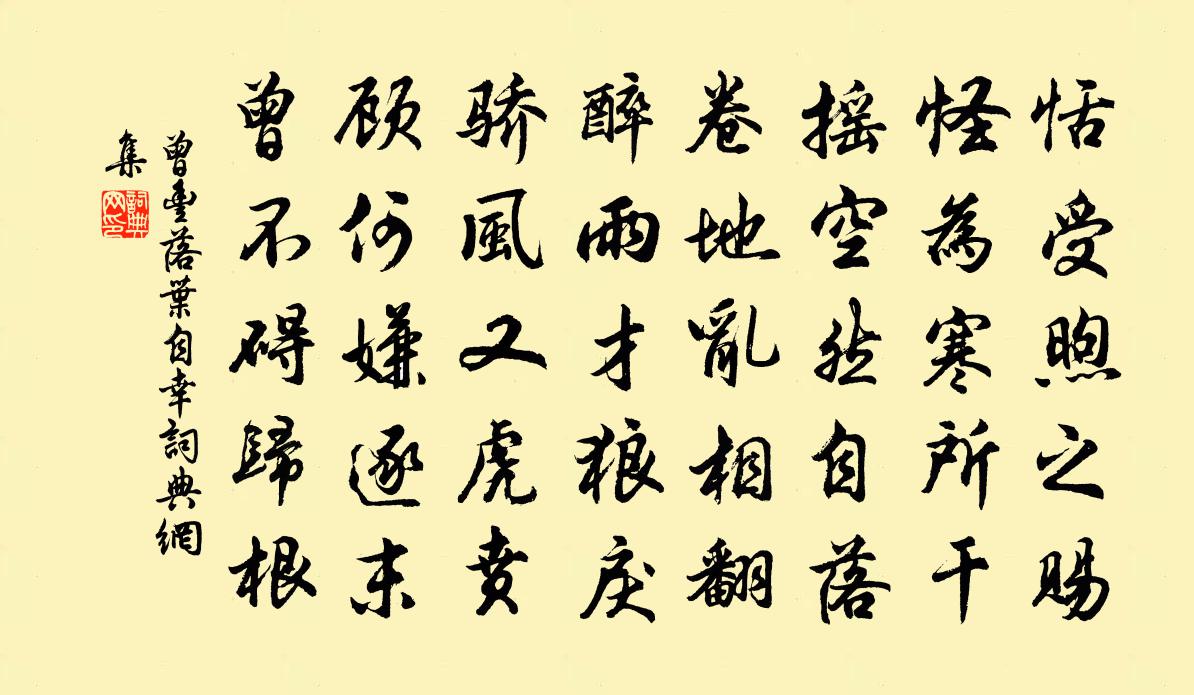 恬受煦之賜
怪為寒所干
摇空然自落
卷地亂相翻
醉雨才狼戾
骄風又虎賁
顾何嫌逐末
曾不碍歸根
曾豊落葉自幸詞典網
集
詞典網印